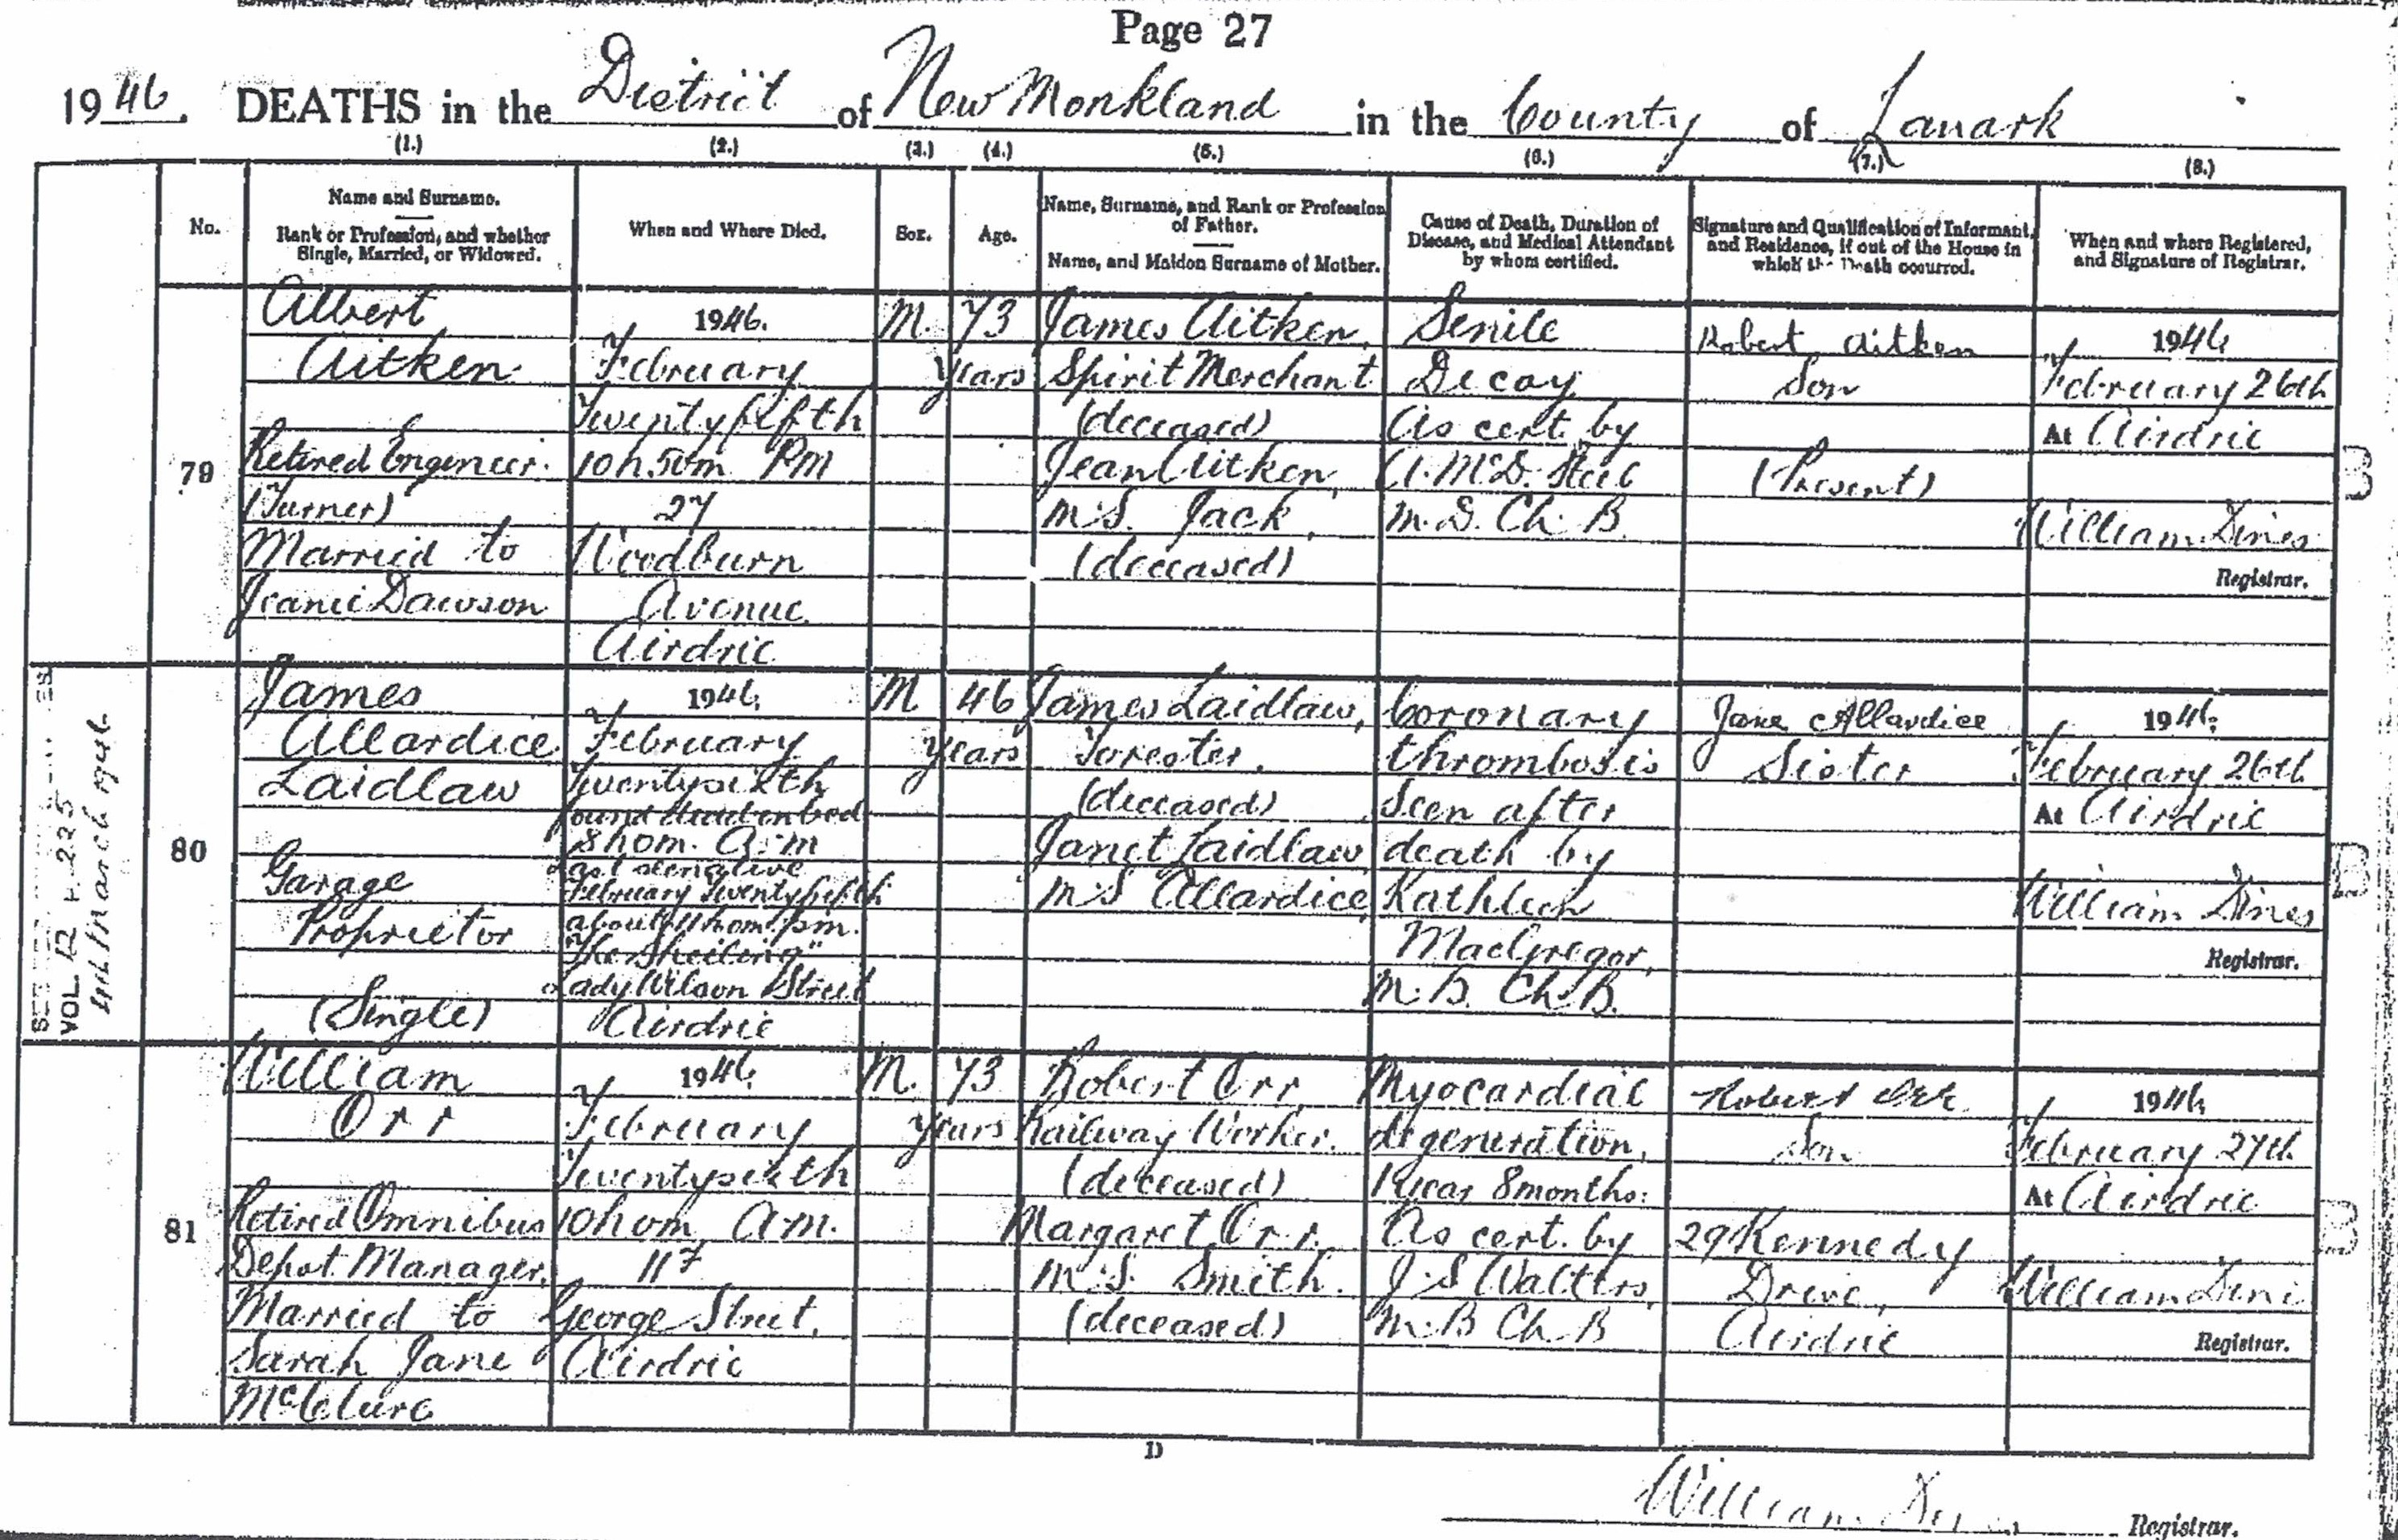 Page 27
1946. DEATHS in the District of New Monkland in the County of Lanark
(1.) (2.) (3.) (4.) (5.) (6.) (7.) (8.)
No.
Name and Surname.
Rank or Profession, and whether
Single, Married, or Widowed.
When and Where Died.
Sex.
Age.
Name, Surname, and Rank or Profession
of Father.
Name, and Maiden Surname of Mother.
Cause of Death, Duration of
Disease, and Medical Attendant
by whom certified.
Signature and Qualification of Informant,
and Residence, if out of the House in
which the Death occurred.
When and where Registered,
and Signature of Registrar.
79
Albert
Aitken
Retired Engineer.
(Turner)
Married to
Jeanie Dawson
1946.
February
Twentyfifth
10h.50m PM
27
Woodburn
Avenue
Airdrie
M.
73
years
James Aitken,
Spirit Merchant
(deceased)
Jean Aitken,
M.S. Jack,
(deceased)
Senile
Decay
As cert. by
A. McD.
Ch. B.
Robert Aitken
Son
(Present)
1946
February 26th
At Airdrie
William
Registrar.
80
James
Allardice
Laidlaw
Garage
Proprietor
(Single)
1946.
February
Twentysixth
found dead in bed
8h 0m. A.M
Last seen alive
February Twentyfifth
about 11h 0m. p.m.
"The Sheiling"
Lady Wilson Street
Airdrie
M
46
years
James Laidlaw,
Forester,
(deceased)
Janet Laidlaw
M.S Allardice
Coronary
thrombosis
Seen after
death by
Kathleen
MacGregor,
M.B. Ch.B.
Jane Allardice
Sister
1946.
February 26th
At Airdrie
William
Registrar.
VOL. 12 P. 225
March 1946
81
William
Orr
Retired Omnibus
Depot Manager.
Married to
Sarah Jane
McClure
1946.
February
Twentysixth
10h 0m. A.M.
117
George Street,
Airdrie
M.
73
years
Robert Orr,
Railway Worker.
(deceased)
Margaret Orr.
M.S. Smith.
(deceased)
Myocardial
degeneration,
1 Year 8 months.
As cert. by
J. S Walters,
M.B Ch.B
Robert Orr.
Son
29 Kennedy
Drive,
Airdrie
1946
February 27th
At Airdrie
William
Registrar.
D
William
Registrar.